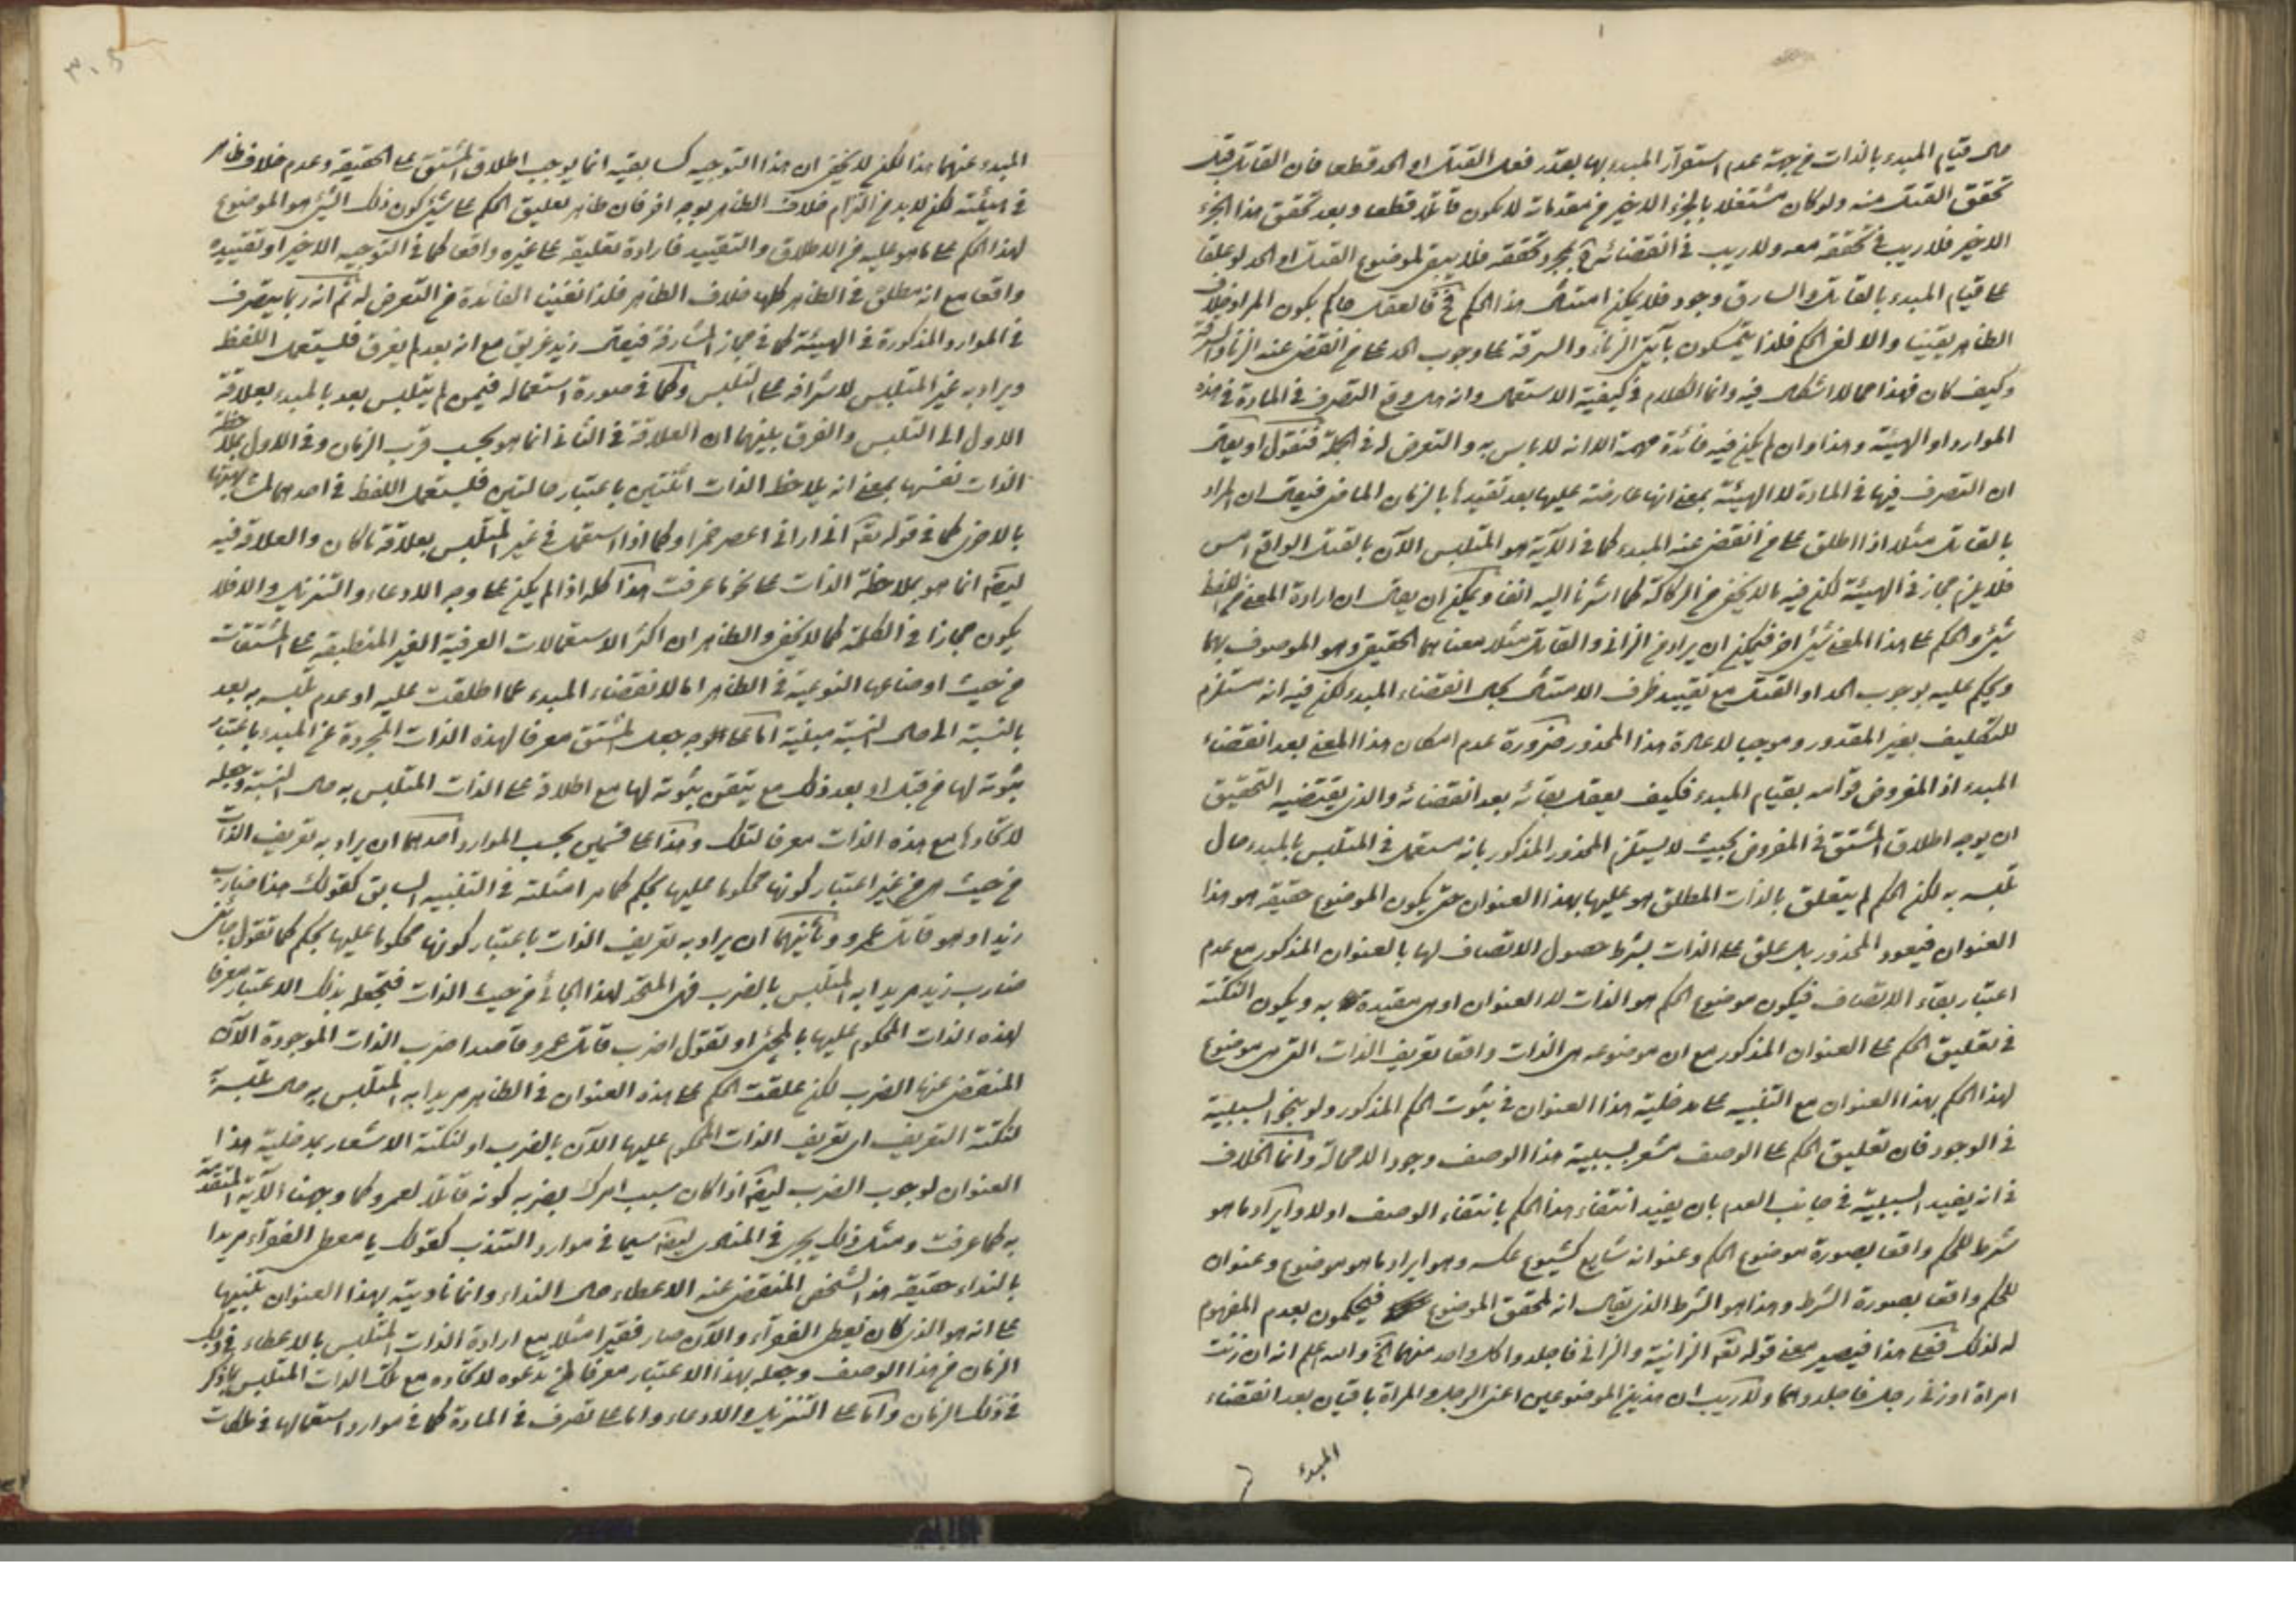 حال قيام المبدء بالذات من جهة عدم استقرار المبدء بها بعدّ رفعل القتل او الحد قطعا فان القاتل قبل
تحقق القتل منه ولو كان مشتغلا بالجزء الاخير من مقدماته لا يكون قاتلا قطعا وبعد تحقق هذا الجزء
الاخير فلا ريب في تحققه معه ولا ريب في انقضائه بمجرد تحققه فلا يبقى لموضوع القتل او الحد لو علقا
على قيام المبدء بالقاتل والسارق وجود فلا يمكن امتثال هذا الحكم فح فالعقل حاكم بكون المراد خلاف
الظاهر يقينا والا لغى الحكم فلذا يتمسكون بآيتي الزناء والسرقة على وجوب الحد على من انقضى عنه الزنا والسرقة
وكيف كان فهذا مما لا اشكال فيه وانما الكلام في كيفية الاستعمال وانه هل وقع التصرف في المادة في هذه
الموارد او الهيئة وهذا وان لم يكن فيه فائدة مهمة الا انه لا باس به والتعرض له في الجملة فنقول او يقال
ان التصرف فيها في المادة لا الهيئة بمعنى انها عارضة عليها بعد تقييدها بالزمان الماضي فيقال ان المراد
بالقاتل مثلا اذا اطلق على من انقضى عنه المبدء كما في الآية هو المتلبس الآن بالقتل الواقع امس
فلا يلزم مجاز في الهيئة لكن فيه ما لا يخفى من الركاكة كما اشرنا اليه انفا ويمكن ان يقال ان ارادة المعنى من اللفظ
شئ والحكم على هذا المعنى شئ اخر فيمكن ان يراد من الزاني والقاتل مثلا معناهما الحقيقي وهو الموصوف بهما
ويحكم عليه بوجوب الحد او القتل مع تقييد ظرف الامتثال بحال انقضاء المبدء لكن فيه انه مستلزم
للتكليف بغير المقدور وموجب لاعادة هذا المحذور ضرورة عدم امكان هذا المعنى بعد انقضاء
المبدء اذ المفروض قوامه بقيام المبدء فكيف يعقل بقائه بعد انقضائه والذي يقتضيه التحقيق
ان يوجه اطلاق المشتق في المفروض بحيث لا يستلزم المحذور المذكور بانه مستعمل في المتلبس بالمبدء حال
تلبسه به لكن الحكم لم يتعلق بالذات المطلق هو عليها بهذا العنوان حتى يكون الموضوع حقيقة هو هذا
العنوان فيعود المحذور بل علق على الذات بشرط حصول الاتصاف لها بالعنوان المذكور مع عدم
اعتبار بقاء الاتصاف فيكون موضوع الحكم هو الذات لا العنوان او هي مقيدة به ويكون النكتة
في تعليق الحكم على العنوان المذكور مع ان موضوعه هي الذات واقعا تعريف الذات التي هي موضوع
لهذا الحكم بهذا العنوان مع التنبيه على مدخلية هذا العنوان في ثبوت الحكم المذكور ولو بنحو السببية
في الوجود فان تعليق الحكم على الوصف مشعر بسببية هذا الوصف وجودا لا محالة وانما الخلاف
في انه يفيد السببية في جانب العدم بان يفيد انتفاء هذا الحكم بانتفاء الوصف او لا وايراد ما هو
شرط للحكم واقعا بصورة موضوع الحكم وعنوانه شايع كشيوع عكسه وهو ايراد ما هو موضوع وعنوان
للحكم واقعا بصورة الشرط وهذا هو الشرط الذي يقال انه لتحقق الموضوع فيحكمون بعدم المفهوم
له لذلك فعلى هذا فيصير معنى قوله تعالى الزانية والزاني فاجلدوا كل واحد منهما الخ والله اعلم انه ان زنت
امراة او زنى رجل فاجلدوهما ولا ريب ان هذين الموضوعين اعنى الرجل والمراة باقيان بعد انقضاء
المبدء
٣٠٥
المبدء عنهما هذا لكن لا يخفى ان هذا التوجيه كسابقيه انما يوجب اطلاق المشتق على الحقيقة وعدم خلاف ظاهر
في هيئته لكن لا بد من التزام خلاف الظاهر بوجه اخر فان ظاهر تعليق الحكم على شئ كون ذلك الشئ هو الموضوع
لهذا الحكم على ما هو عليه من الاطلاق والتقييد فارادة تعليقه على غيره واقعا كما في التوجيه الاخير او تقييده
واقعا مع انه مطلق في الظاهر كلها خلاف الظاهر فلذا نفينا الفائدة من التعرض له ثم انه ربما يتصرف
في الموارد المذكورة في الهيئة كما في مجاز المشارفة فيقال زيد غريق مع انه بعد لم يغرق فليستعمل اللفظ
ويراد به غير المتلبس لاشرافه على التلبس وكما في صورة استعماله فيمن لم يتلبس بعد بالمبدء بعلاقة
الاول الى التلبس والفرق بينهما ان العلاقة في الثاني انما هو بحسب قرب الزمان وفي الاول بملاحظة
الذات نفسها بمعنى انه يلاحظ الذات اثنتين باعتبار حالتين فليستعمل اللفظ في احدهما لمشابهتها
بالاخرى كما في قوله تعالى اني اراني اعصر خمرا وكما اذا استعمل في غير المتلبس بعلاقة ما كان والعلاقة فيه
ايضا انما هو بملاحظة الذات على نحو ما عرفت هذا كله اذا لم يكن على وجه الادعاء والتنزيل والا فلا
يكون مجازا في الكلمة كما لا يخفى والظاهر ان اكثر الاستعمالات العرفية الغير المنطبقة على المشتقات
من حيث اوضاعها النوعية في الظاهر اما لانقضاء المبدء عما اطلقت عليه او عدم تلبسه به بعد
بالنسبة الى حال النسبة مبنية اما على وجه جعل المشتق معرفا لهذه الذات المجردة عن المبدء باعتبار
ثبوته لها من قبل او بعد ذلك مع تيقن ثبوته لها مع اطلاقه على الذات المتلبس به حال النسبة وجعله
لاتحادها مع هذه الذات معرفا لتلك وهذا على قسمين بحسب الموارد احدهما ان يراد به تعريف الذات
من حيث هي من غير اعتبار كونها محكوما عليها بحكم كما مر امثلته في التنبيه السابق كقولك هذا ضارب
زيد او هو قاتل عمرو وثانيهما ان يراد به تعريف الذات باعتبار كونها محكوما عليها بحكم كما تقول جائني
ضارب زيد مريدا به المتلبس بالضرب قبل المتحد لهذا الجائي من حيث الذات فتجعله بذلك الاعتبار معرفا
لهذه الذات المحكوم عليها بالمجئ او تقول اضرب قاتل عمرو قاصدا ضرب الذات الموجودة الآن
المنقضي عنها الضرب لكن علقت الحكم على هذا العنوان في الظاهر مريدا به المتلبس به حال تلبسه
لنكتة التعريف اي تعريف الذات المحكوم عليها الآن بالضرب او لنكتة الاشعار بمدخلية هذا
العنوان لوجوب الضرب ايضا اذا كان سبب امرك بضربه كونه قاتلا لعمرو كما وجهنا الآية المتقدمة
به كما عرفت ومثل ذلك يجري في المنادى ايضا سيما في موارد التندب كقولك يا معطي الفقراء مريدا
بالنداء حقيقة هذا الشخص المنقضي عنه الاعطاء حال النداء وانما ناديته بهذا العنوان تنبيها
على انه هو الذي كان يعطي الفقراء والآن صار فقيرا مثلا مع ارادة الذات المتلبس بالاعطاء في ذلك
الزمان من هذا الوصف وجعله بهذا الاعتبار معرفا لمن تدعوه لاتحاده مع تلك الذات المتلبس بما ذكر
في ذلك الزمان واما على التنزيل والادعاء واما على تصرف في المادة كما في موارد استعمالها في ملكات